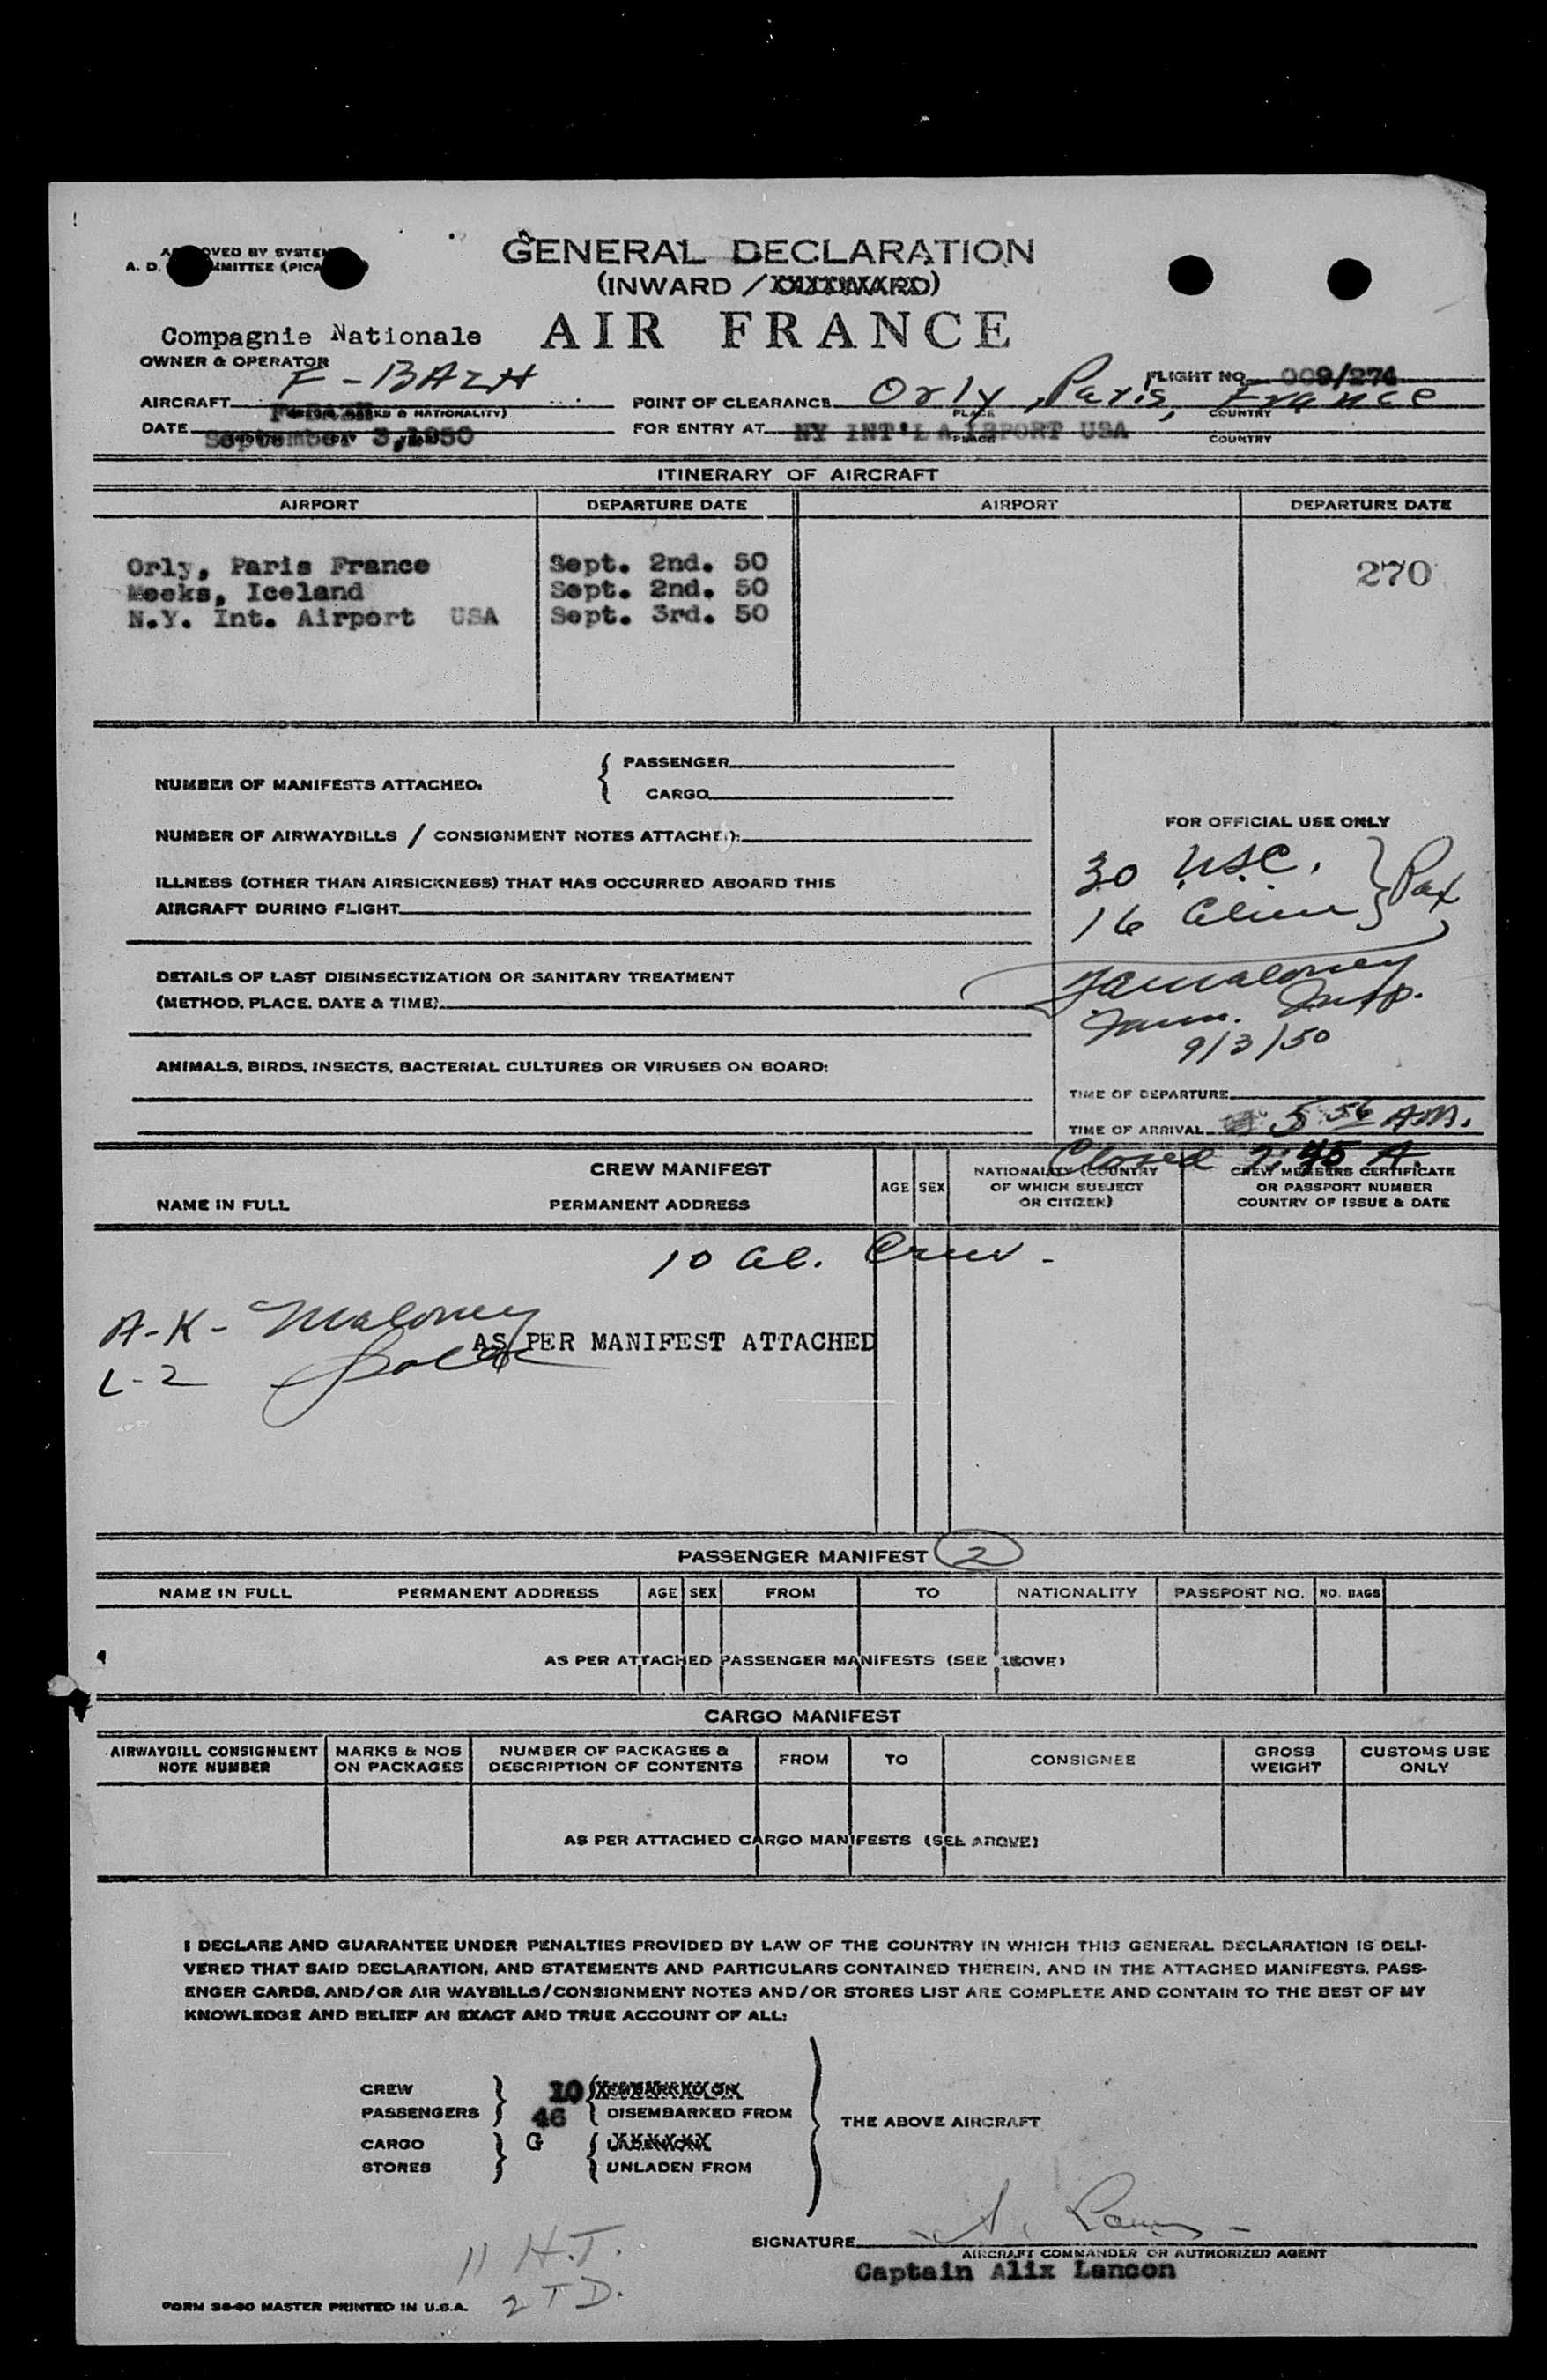 GENERAL DECLARATION
(INWARD / OUTWARD)
AIR FRANCE
Compagnie Nationale
OWNER & OPERATOR
F-BAZH
FLIGHT NO. 009/274
AIRCRAFT
POINT OF CLEARANCE Orly, Paris, France
PLACE COUNTRY
DATE September 3,1950
FOR ENTRY AT NY INT'L AIRPORT USA
PLACE COUNTRY
ITINERARY OF AIRCRAFT
AIRPORT DEPARTURE DATE AIRPORT DEPARTURE DATE
Orly, Paris France Sept. 2nd. 50 270
Meeks, Iceland Sept. 2nd. 50
N.Y. Int. Airport USA Sept. 3rd. 50
NUMBER OF MANIFESTS ATTACHED.
PASSENGER
CARGO
NUMBER OF AIRWAYBILLS / CONSIGNMENT NOTES ATTACHED:
ILLNESS (OTHER THAN AIRSICKNESS) THAT HAS OCCURRED ABOARD THIS
AIRCRAFT DURING FLIGHT
DETAILS OF LAST DISINSECTIZATION OR SANITARY TREATMENT
(METHOD, PLACE, DATE & TIME)
ANIMALS, BIRDS, INSECTS, BACTERIAL CULTURES OR VIRUSES ON BOARD:
FOR OFFICIAL USE ONLY
30 USC. } Pax
16 Alien
Maloney
Imm. Insp.
9/3/50
TIME OF DEPARTURE
TIME OF ARRIVAL 5 56 AM.
Closed 7:45 A.
CREW MANIFEST
NAME IN FULL PERMANENT ADDRESS AGE SEX
NATIONALITY (COUNTRY
OF WHICH SUBJECT
OR CITIZEN)
CREW MEMBERS CERTIFICATE
OR PASSPORT NUMBER
COUNTRY OF ISSUE & DATE
10 Al. Crew -
A-K- Maloney
AS PER MANIFEST ATTACHED
L-2
PASSENGER MANIFEST 2
NAME IN FULL PERMANENT ADDRESS AGE SEX FROM TO NATIONALITY PASSPORT NO. NO. BAGS
AS PER ATTACHED PASSENGER MANIFESTS (SEE ABOVE)
CARGO MANIFEST
AIRWAYBILL CONSIGNMENT
NOTE NUMBER
MARKS & NOS
ON PACKAGES
NUMBER OF PACKAGES &
DESCRIPTION OF CONTENTS
FROM TO CONSIGNEE
GROSS
WEIGHT
CUSTOMS USE
ONLY
AS PER ATTACHED CARGO MANIFESTS (SEE ABOVE)
I DECLARE AND GUARANTEE UNDER PENALTIES PROVIDED BY LAW OF THE COUNTRY IN WHICH THIS GENERAL DECLARATION IS DELI-
VERED THAT SAID DECLARATION, AND STATEMENTS AND PARTICULARS CONTAINED THEREIN, AND IN THE ATTACHED MANIFESTS, PASS-
ENGER CARDS, AND/OR AIR WAYBILLS/CONSIGNMENT NOTES AND/OR STORES LIST ARE COMPLETE AND CONTAIN TO THE BEST OF MY
KNOWLEDGE AND BELIEF AN EXACT AND TRUE ACCOUNT OF ALL:
CREW 10
PASSENGERS 46 DISEMBARKED FROM
THE ABOVE AIRCRAFT
CARGO G
STORES UNLADEN FROM
SIGNATURE
AIRCRAFT COMMANDER OR AUTHORIZED AGENT
Captain Alix Lancon
11 H.T.
2 T D.
FORM 36-60 MASTER PRINTED IN U.S.A.